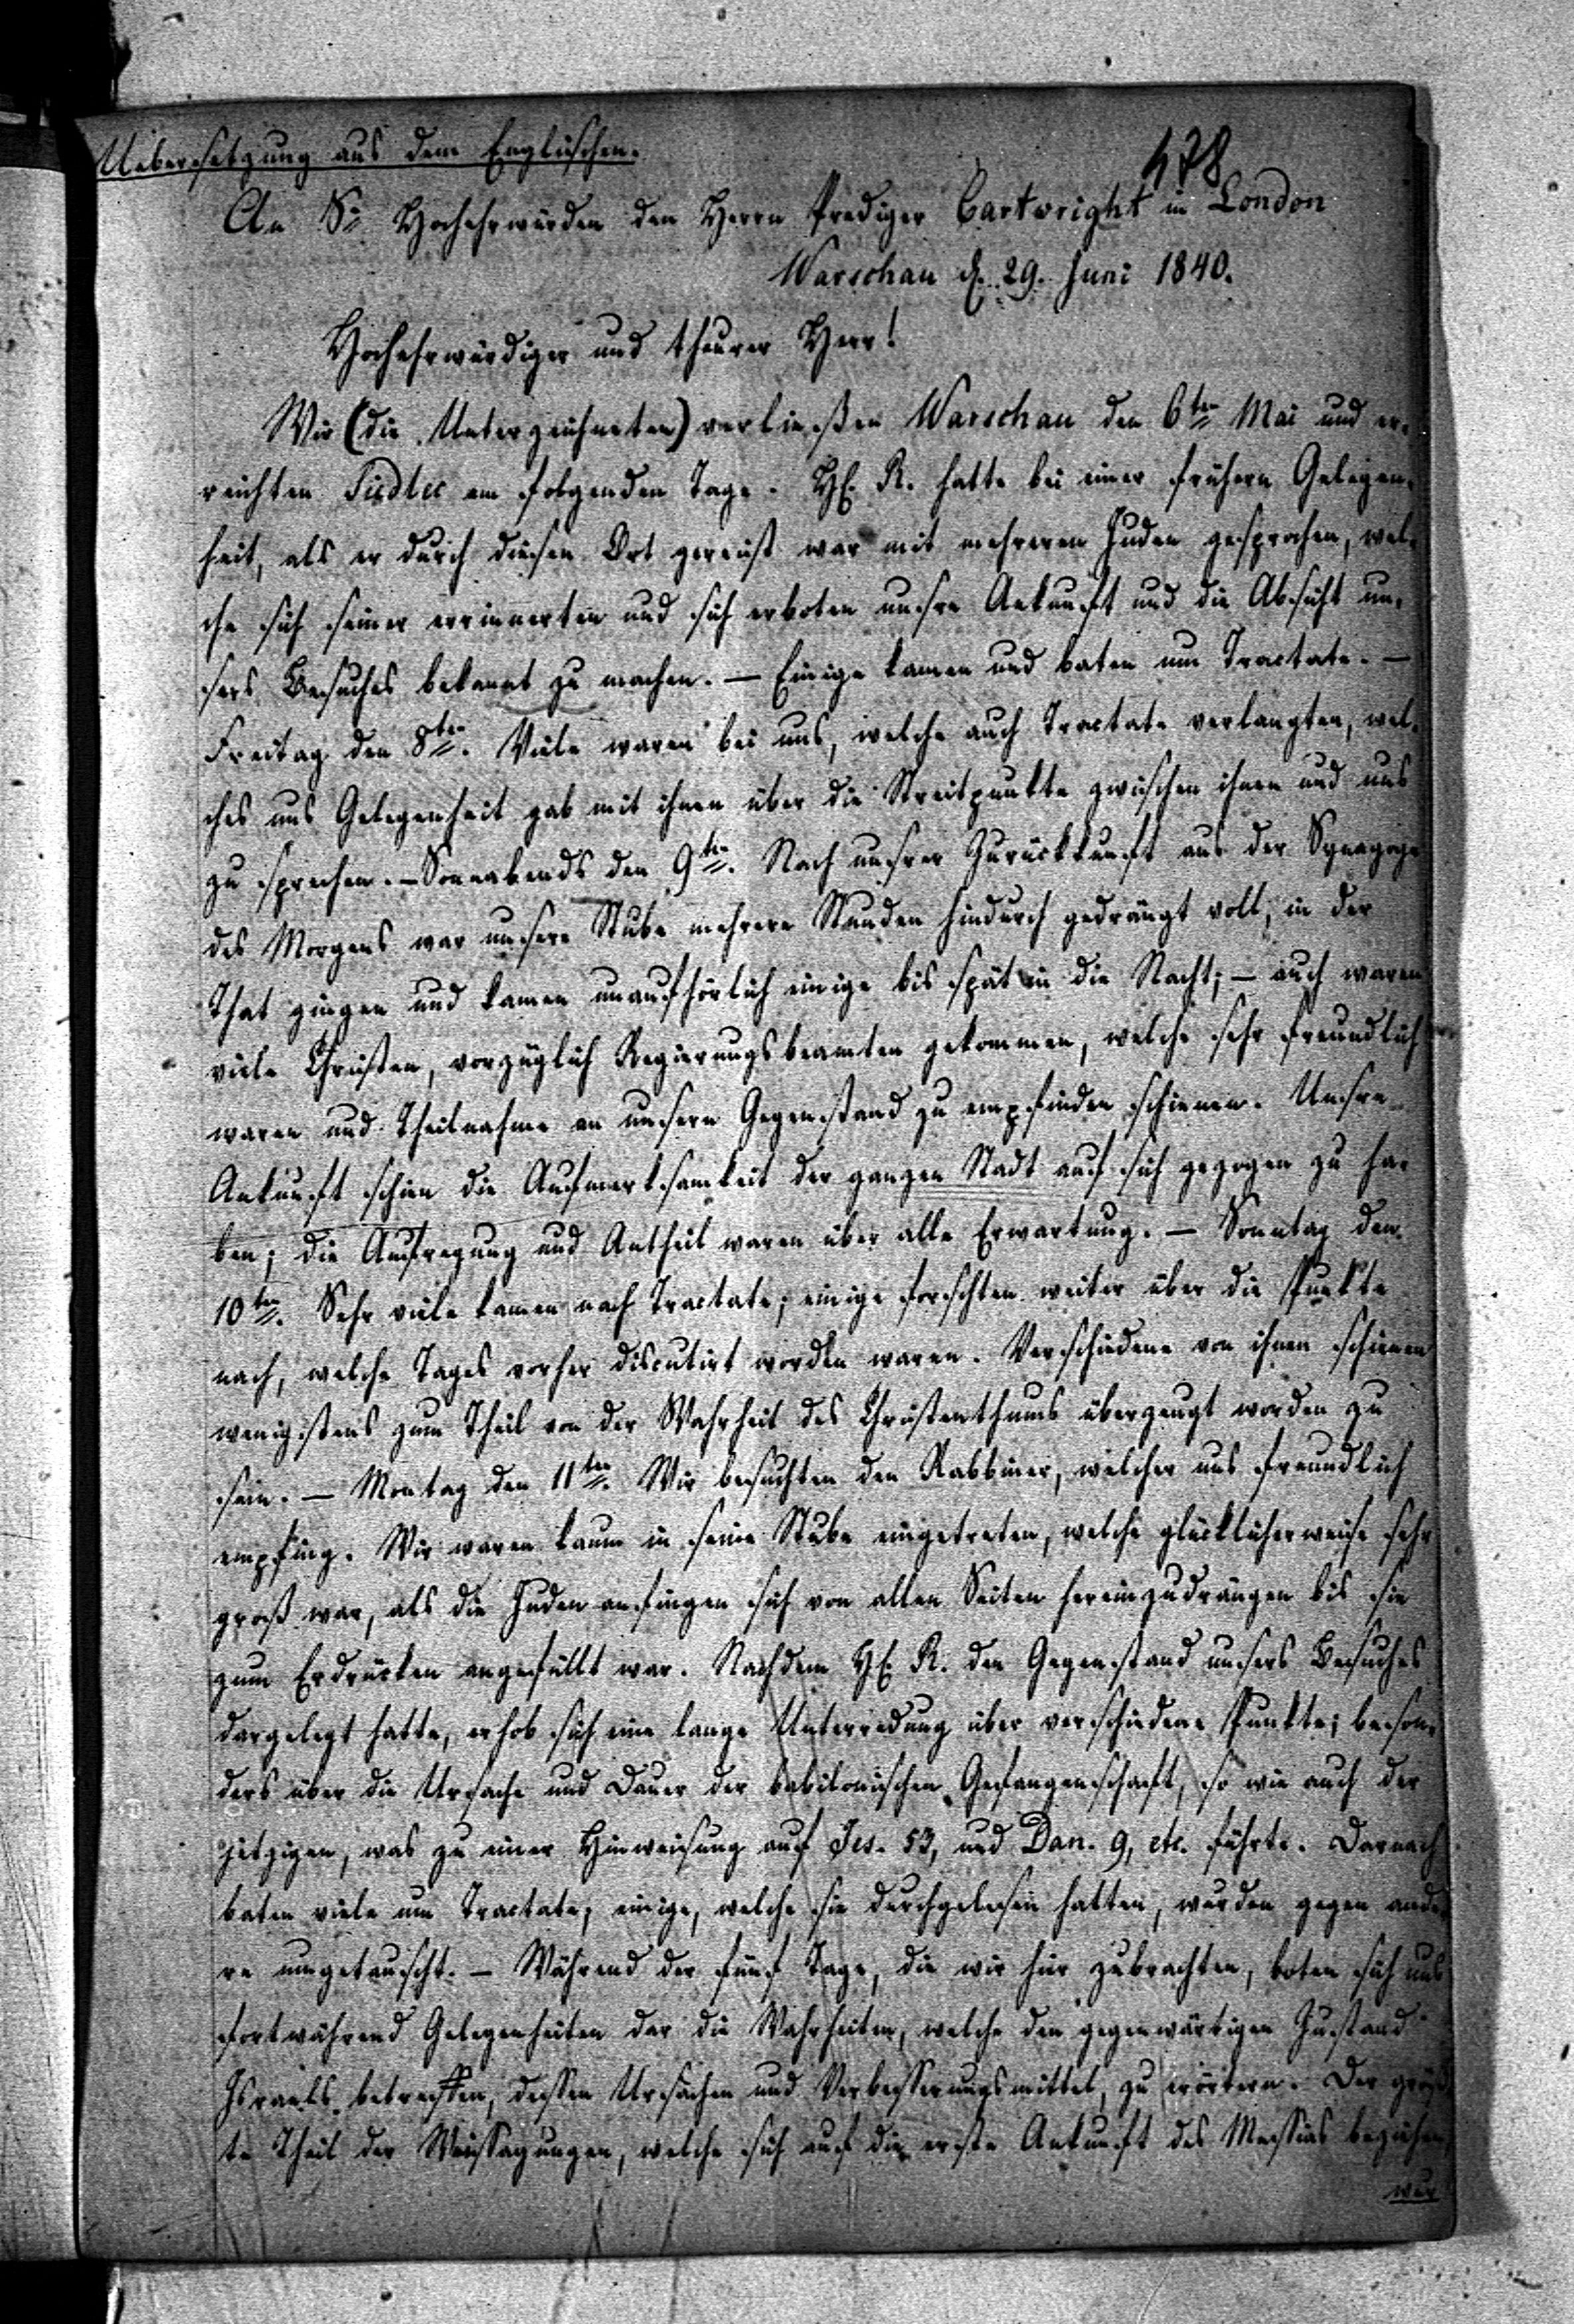 Uebersetzung aus dem Englischen.
478
An Sr Hochehrwürden den Herrn Prediger Cartwright in London
Warschau d. 29. Juni 1840.
Hochehrwürdiger und theurer Herr!
Wir (die Unterzeichneten) verließen Warschau den 6ten Mai und er-
reichten Siedlec am folgenden Tage. H. R. hatte bei einer frühern Gelegen-
heit, als er durch diesen Ort gereist war mit mehreren Juden gesprochen, wel-
che sich seiner erinnerten und sich erboten unsre Ankunft und die Absicht un-
sers Besuches bekannt zu machen. — Einige kamen und baten um Tractate. —
Freitag den 8ten. Viele waren bei uns, welche auch Tractate verlangten, wel-
ches uns Gelegenheit gab mit ihnen über die Streitpunkte zwischen ihnen und uns
zu sprechen. — Sonnabends den 9ten. Nach unsrer Zurückkunft aus der Synagoge
des Morgens war unsere Stube mehrere Stunden hindurch gedrängt voll, in der
That gingen und kamen unaufhörlich einige bis spät in die Nacht; — auch waren
viele Christen, vorzüglich Regierungsbeamten gekommen, welche sehr freundlich
waren und Theilnahme an unserm Gegenstand zu empfinden schienen. Unsre
Ankunft schien die Aufmerksamkeit der ganzen Stadt auf sich gezogen zu ha-
ben; die Aufregung und Antheil waren über alle Erwartung. — Sonntag den
10ten. Sehr viele kamen nach Tractate; einige forschten weiter über die Punkte
nach, welche Tages vorher discutirt worden waren. Verschiedene von ihnen schienen
wenigstens zum Theil von der Wahrheit des Christenthums überzeugt worden zu
sein. — Montag den 11ten. Wir besuchten den Rabbiner, welcher uns freundlich
empfing. Wir waren kaum in seine Stube eingetreten, welche glücklicherweise sehr
groß war, als die Juden anfingen sich von allen Seiten hereinzudrängen bis sie
zum Erdrücken angefüllt war. Nachdem H. R. den Gegenstand unsers Besuches
dargelegt hatte, erhob sich eine lange Unterredung über verschiedene Punkte; beson-
ders über die Ursache und Dauer der babilonischen Gefangenschaft, so wie auch der
jetzigen, was zu einer Hinweisung auf Jes. 53, und Dan. 9, etc. führte. Darnach
baten viele um Tractate, einige, welche sie durchgelesen hatten, wurden gegen ande-
re umgetauscht. — Während der fünf Tage, die wir hier zubrachten, boten sich uns
fortwährend Gelegenheiten dar die Wahrheiten, welche den gegenwärtigen Zustand
Israels betreffen, dessen Ursachen und Verbesserungsmittel, zu erörtern. Der größ-
te Theil der Weissagungen, welche sich auf die erste Ankunft des Messias beziehen,
wur